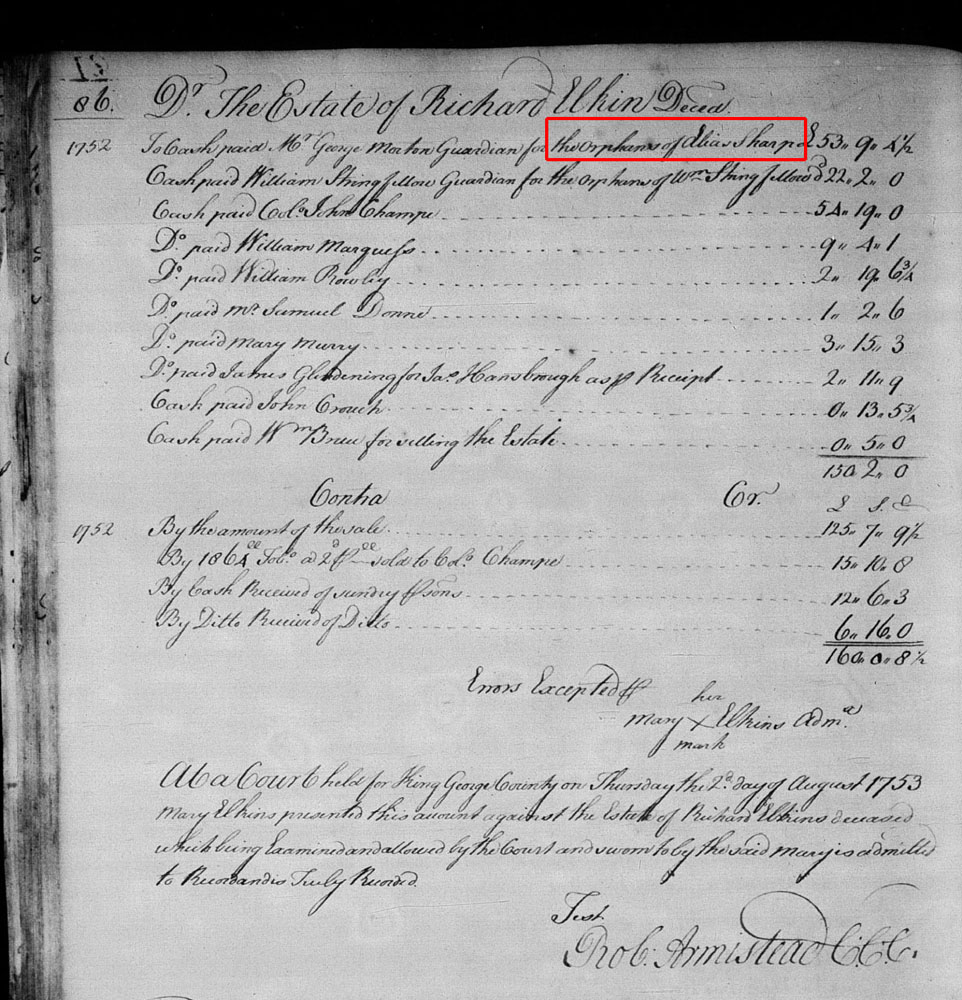 86.
Dr. The Estate of Richard Elkin Deced.
1752 To Cash paid Mr. George Morton Guardian for the orphans of Elias Sharp £ 53 " 9 " 4 1/2
Cash paid William Stringfellow Guardian for the orphans of Wm Stringfellow 22 " 2 " 0
Cash paid Colo. John Champe 54 " 19 " 0
Do. paid William Marquess 9 " 4 " 1
Do. paid William Rowley 2 " 19 " 6 3/4
Do. paid Mr. Samuel Donne 1 " 2 " 6
Do. paid Mary Murry 3 " 15 " 3
Do. paid James Glendening for Jas. Hansbrough as p Receipt 2 " 11 " 9
Cash paid John Crouch 0 " 13 " 5 3/4
Cash paid Wm Brew for selling the Estate 0 " 5 " 0
150 " 2 " 0
Contra Cr. £ S. d
1752 By the amount of the sale 125 " 7 " 9 1/2
By 1864 ll Tobo. a 2d p ll sold to Colo. Champe 15 " 10 " 8
By Cash Received of sundry psons 12 " 6 " 3
By Ditto Received of Ditto 6 " 16 " 0
160 " 0 " 8 1/2
Errors Excepted p
her
Mary X Elkins Adm.
mark
At a Court held for King George County on Thursday the 2d. day of August 1753
Mary Elkins presented this amount against the Estate of Richard Elkins deceased
which being Examined and allowed by the Court and sworn to by the said Mary is admitted
to Record and is Truly Recorded.
Test
Rob: Armistead C.C.C.